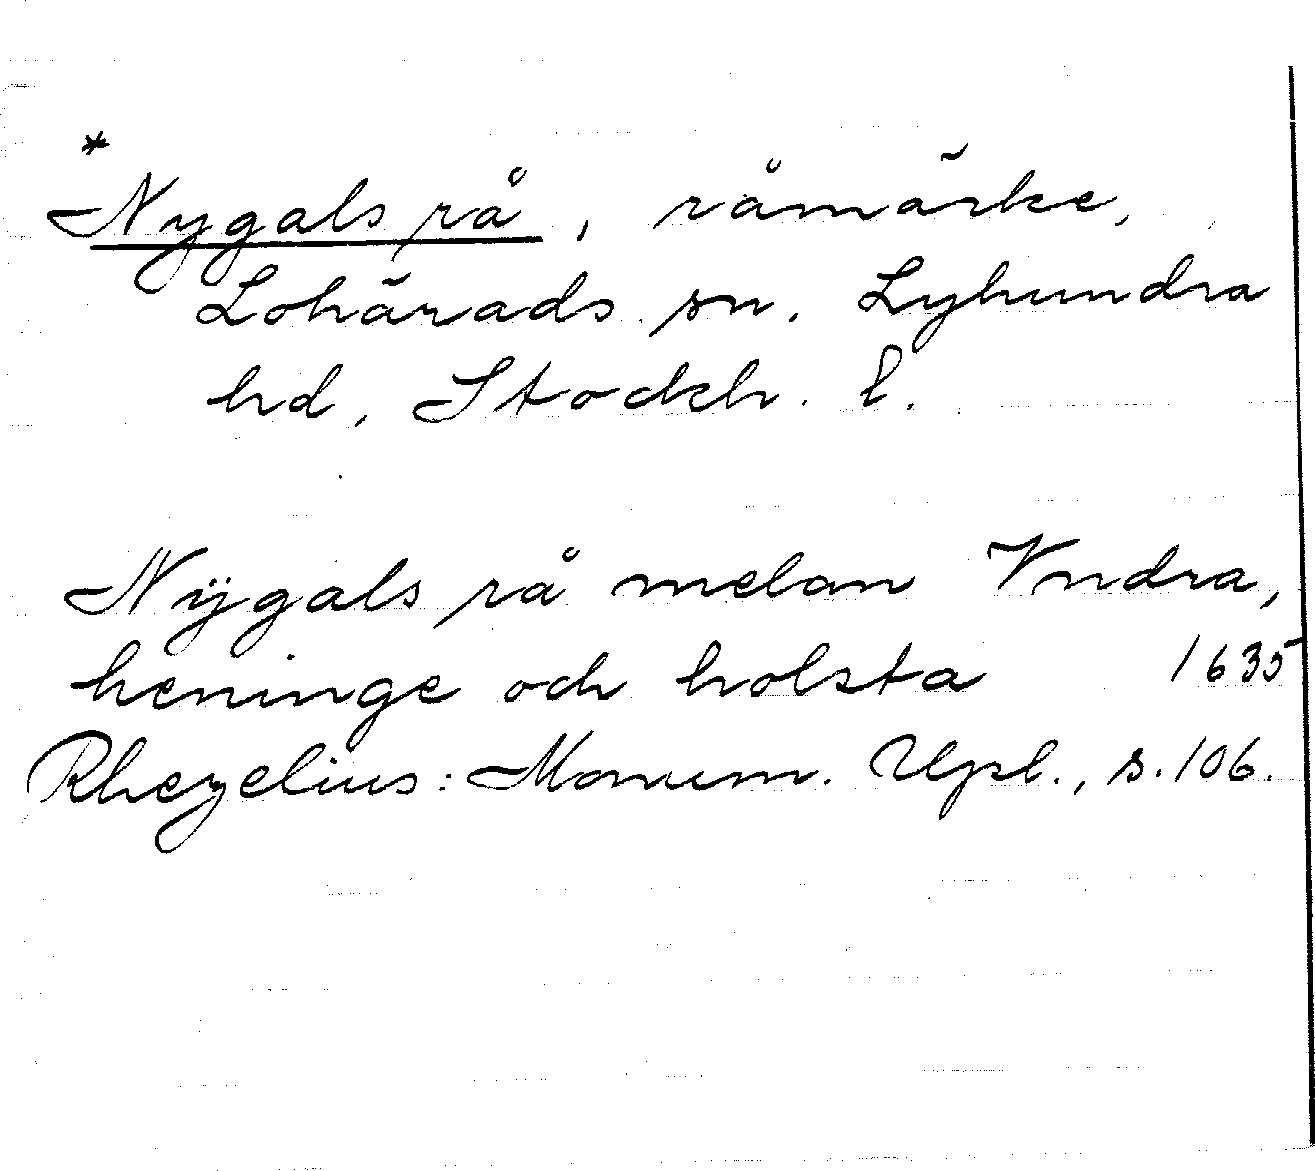 *
Nygals rå, råmärke,
Lohärads sn. Lyhundra
hd, Stockh. l.
Nÿgals rå melan Vndra,
heninge och holsta 1635
Rhezelius: Monum. Upl., s. 106.